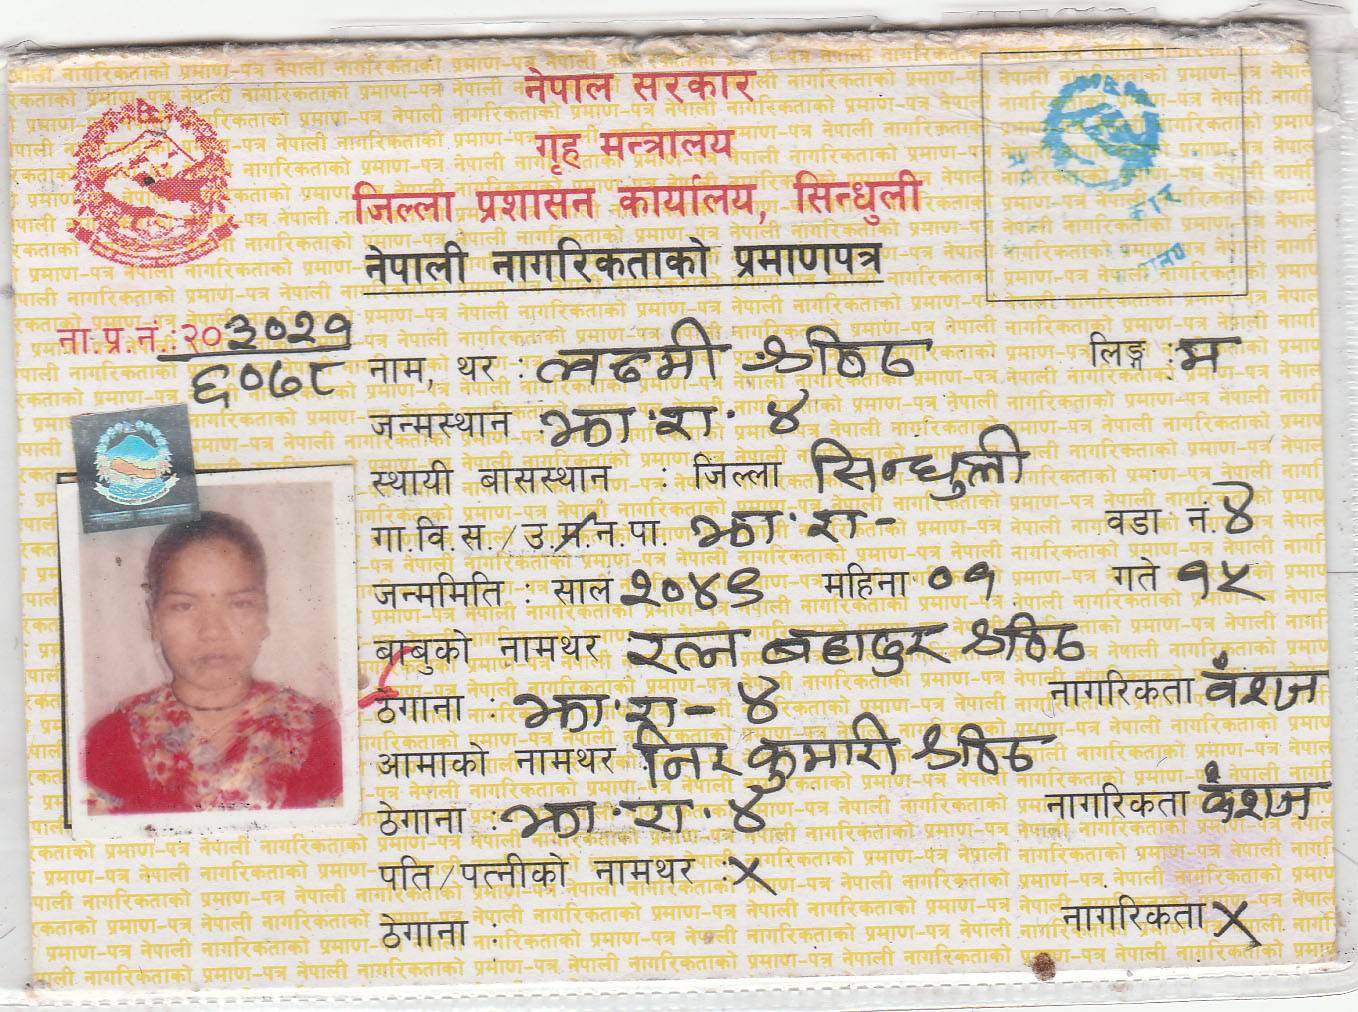 नेपाल सरकार
गृह मन्त्रालय
जिल्ला प्रशासन कार्यालय, सिन्धुली
नेपाली नागरिकताको प्रमाणपत्र
ना.प्र.नं.:२०३०२१
६०७८
नाम, थर : लक्ष्मी श्रेष्ठ लिङ्ग : म
जन्मस्थान झा.रा. ४
स्थायी बासस्थान : जिल्ला सिन्धुली
गा.वि.स./उ.म.न.पा. झा.रा- वडा नं.४
जन्ममिति : साल २०४९ महिना ०१ गते १५
बाबुको नामथर रत्न बहादुर श्रेष्ठ
ठेगाना : झा.रा- ४ नागरिकता वंशज
आमाको नामथर निर कुमारी श्रेष्ठ
ठेगाना : झा.रा. ४ नागरिकता वंशज
पति/पत्नीको नामथर : X
ठेगाना : नागरिकता X